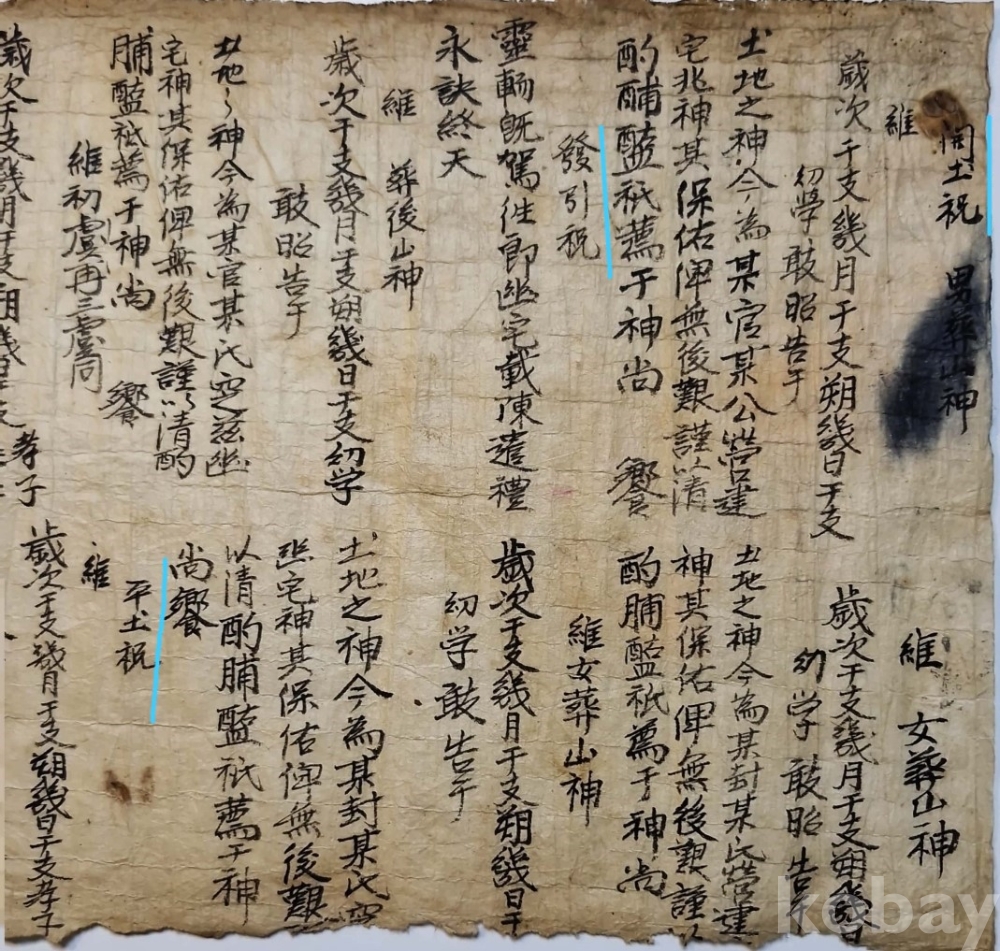 開土祝 男葬山神
維
歲次干支幾月干支朔幾日干支
幼學敢昭告于
土地之神今為某官某公營建
宅兆神其保佑俾無後艱謹以清
酌脯醢祗薦于神尚 饗
發引祝
靈輀旣駕徃即幽宅載陳遣禮
永訣終天
維 葬後山神
歲次干支幾月干支朔幾日干支幼学
敢昭告于
土地之神今為某官某氏窆玆幽
宅神其保佑俾無後艱謹以清酌
脯醢祗薦于神尚 饗
維初虞再三虞同
歲次干支幾月干支朔幾日干支 孝子
維 女葬山神
歲次干支幾月干支朔幾日
幼学敢昭告于
土地之神今為某封某氏營建
神其保佑俾無後艱謹以
酌脯醢祗薦于神尚
維女葬山神
歲次干支幾月干支朔幾日干
幼学敢告于
土地之神今為某封某氏窆
玆宅神其保佑俾無後艱
以清酌脯醢祗薦于神
尚饗
平土祝
維
歲次干支幾月干支朔幾日干支孝子
kobay